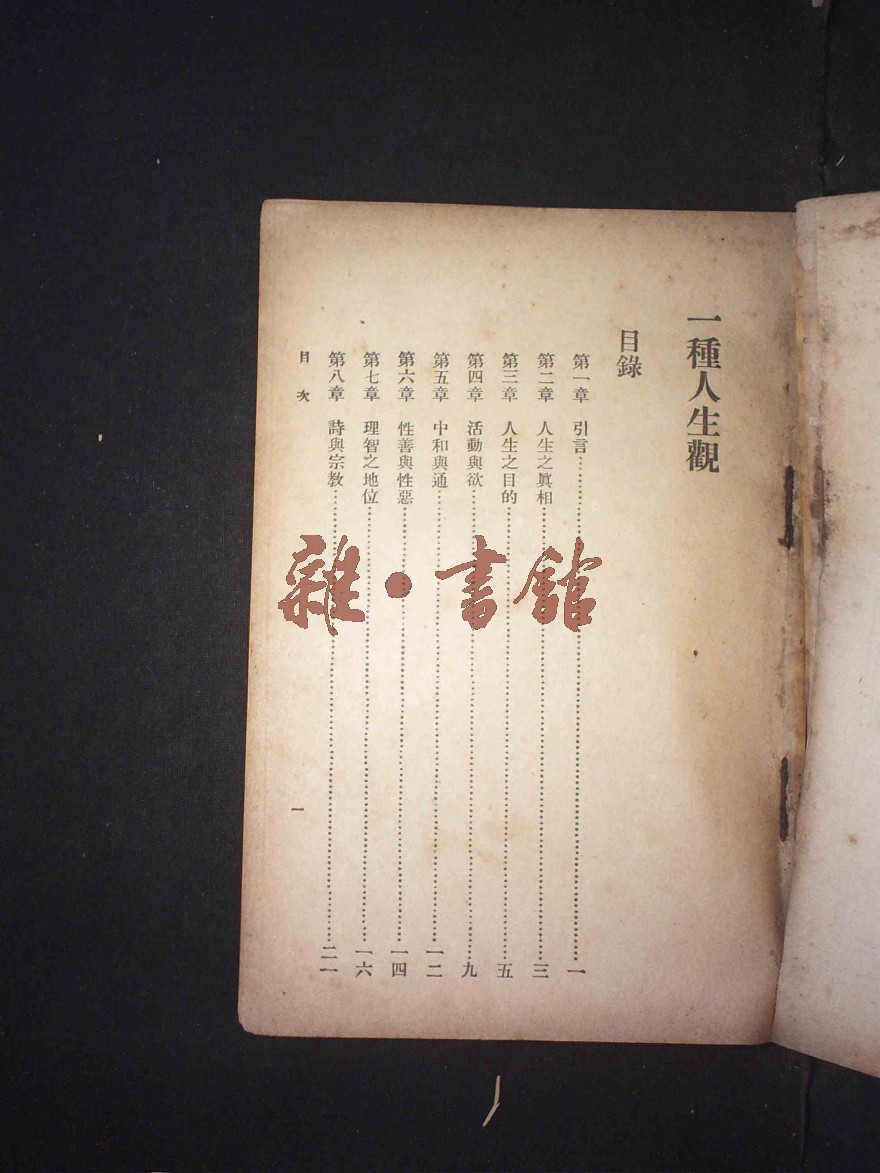 一種人生觀
目錄
第一章 引言……一
第二章 人生之眞相……三
第三章 人生之目的……五
第四章 活動與欲……九
第五章 中和與通……一二
第六章 性善與性惡……一四
第七章 理智之地位……一六
第八章 詩與宗教……二一
目次 一
雜·書館